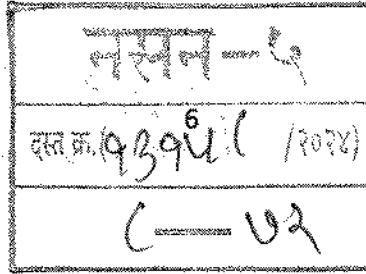 नसन - ५
दस्त क्र. (१३१५८ /२०२४)
6
८ — ७२